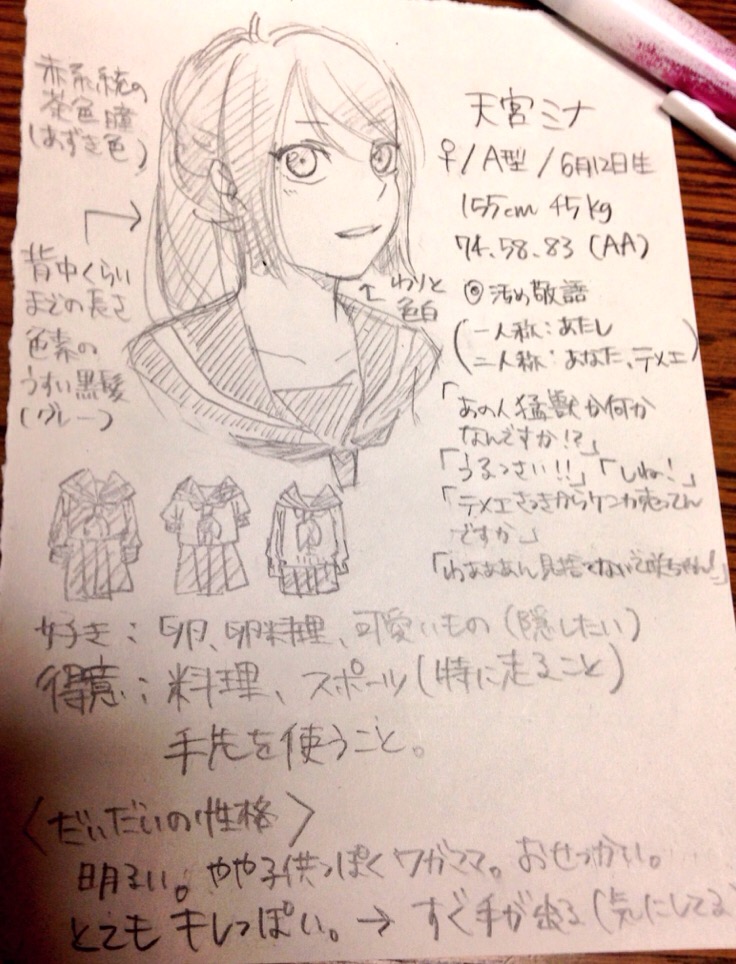 赤系統の
茶色瞳
(あずき色)
背中くらい
までの長さ
色素の
うすい黒髪
(グレー)
天宮ミナ
♀/A型/6月12日生
155cm 45kg
74.58.83 (AA)
わりと
色白
敬語
一人称:あたし
二人称:あなた、テメエ
「あの人猛獣か何か
なんですか!?」
「うるっさい!!」「しね!」
「テメエさっきからケンカ売ってん
ですか」
「わぁぁぁん見捨てないで咲ちゃん!」
好き:卵、卵料理、可愛いもの(隠したい)
得意:料理、スポーツ(特に走ること)
手先を使うこと。
〈だいだいの性格〉
明るい。やや子供っぽくワガママ。おせっかい。
とてもキレっぽい。→すぐ手が出る(気にしてる